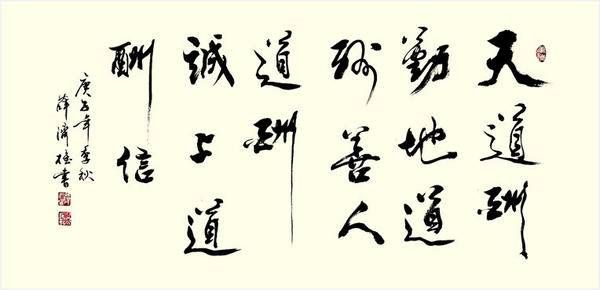 天道酬
勤地道
酬善人
道酬
誠商道
酬信
庚子年季秋
薛濟書